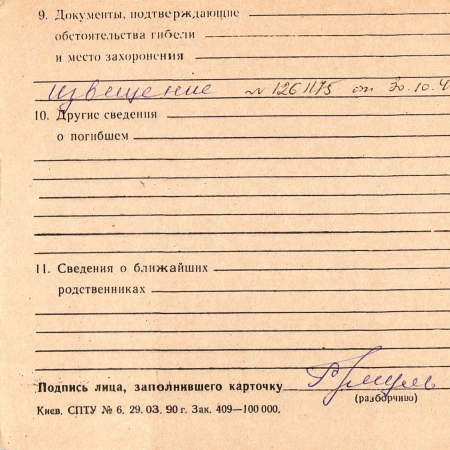 9. Документы, подтверждающие
обстоятельства гибели
и место захоронения
извещение № 1261175 от 30.10.4
10. Другие сведения
о погибшем
11. Сведения о ближайших
родственниках
Подпись лица, заполнившего карточку
(разборчиво)
Киев. СПТУ № 6. 29. 03. 90 г. Зак. 409—100 000.